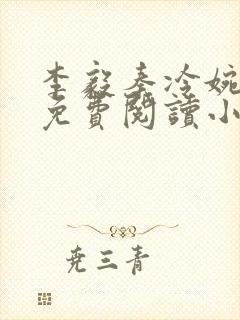 李毅秦冷婉
免費閱讀小
堯三青